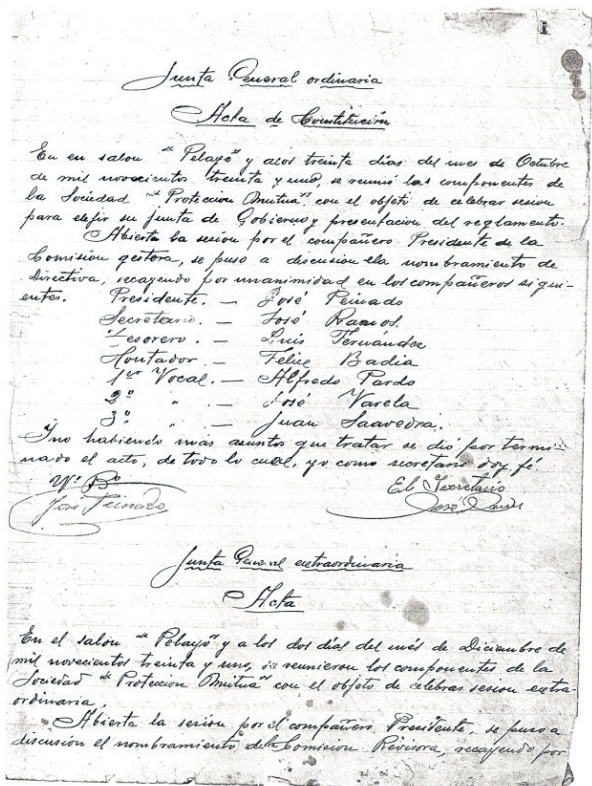 Junta General ordinaria
Acta de Constitución
En en salon "Pelayo" y alos treinta días del mes de Octubre
de mil novecientos treinta y uno, se reunió las componentes de
la Sociedad "Proteccion Mutua", con el objeto de celebrar sesion
para elejir su junta de Gobierno y presentacion del reglamento.
Abierta la sesion por el compañero Presidente de la
Comision gestora, se puso a discusion el nombramiento de
Directiva, recayendo por unanimidad en los compañeros sigui-
entes. Presidente. — José Peinado
Secretario. — José Ramos.
Tesorero. — Luis Fernández
Contador. — Felix Badia
1er Vocal. — Alfredo Pardo
2º " — José Varela
3º " — Juan Saavedra.
I no habiendo mas asuntos que tratar se dió por termi-
nado el acto, de todo lo cual, yo como secretario doy fé
Vº Bº El Secretario
José Peinado José Ramos
Junta General extraordinaria
Acta
En el salon "Pelayo" y a los dos días del més de Diciembre de
mil novecientos treinta y uno, se reunieron los componentes de la
Sociedad "Proteccion Mutua" con el objeto de celebras sesion extra-
ordinaria.
Abierta la sesion por el compañero Presidente, se puso a
discusion el nombramiento de la Comision Revisora, recayendo por